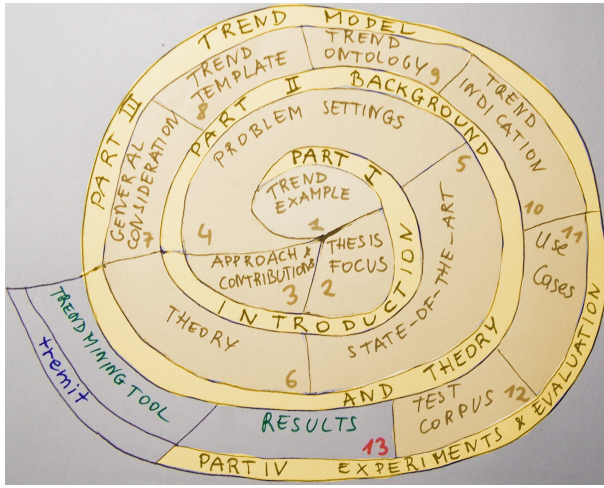 PART I
INTRODUCTION
TREND
EXAMPLE
1
THESIS
FOCUS
2
APPROACH &
CONTRIBUTIONS
3
PART II BACKGROUND
AND THEORY
PROBLEM SETTINGS
4
5
STATE-OF-THE-ART
THEORY
6
PART III TREND MODEL
GENERAL
CONSIDERATION
7
TREND
TEMPLATE
8
TREND
ONTOLOGY
9
TREND
INDICATION
10
PART IV EXPERIMENTS & EVALUATION
11
USE
CASES
TEST
CORPUS
12
RESULTS
13
TRENDMINING TOOL
tremit